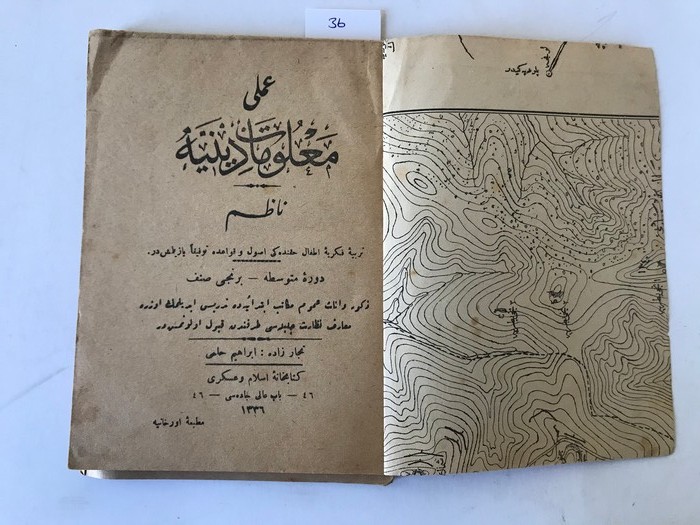 36
عملی
معلومات دینیه
ناظم
تربیهٔ فکریهٔ اطفال حقنده‌کی اصول و قواعده توفیقاً یازلمش‌در.
دورهٔ متوسطه — برنجی صنف
ذکور و اناث عموم مکاتب ابتدائیه‌ده تدریس ایدیلمك اوزره
معارف نظارت جلیله‌سی طرفندن قبول اولونمش‌در
نجار زاده : ابراهیم حلمی
کتابخانهٔ اسلام و عسکری
٤٦ — باب عالی جاده‌سی — ٤٦
١٣٣٦
مطبعهٔ اورخانیه